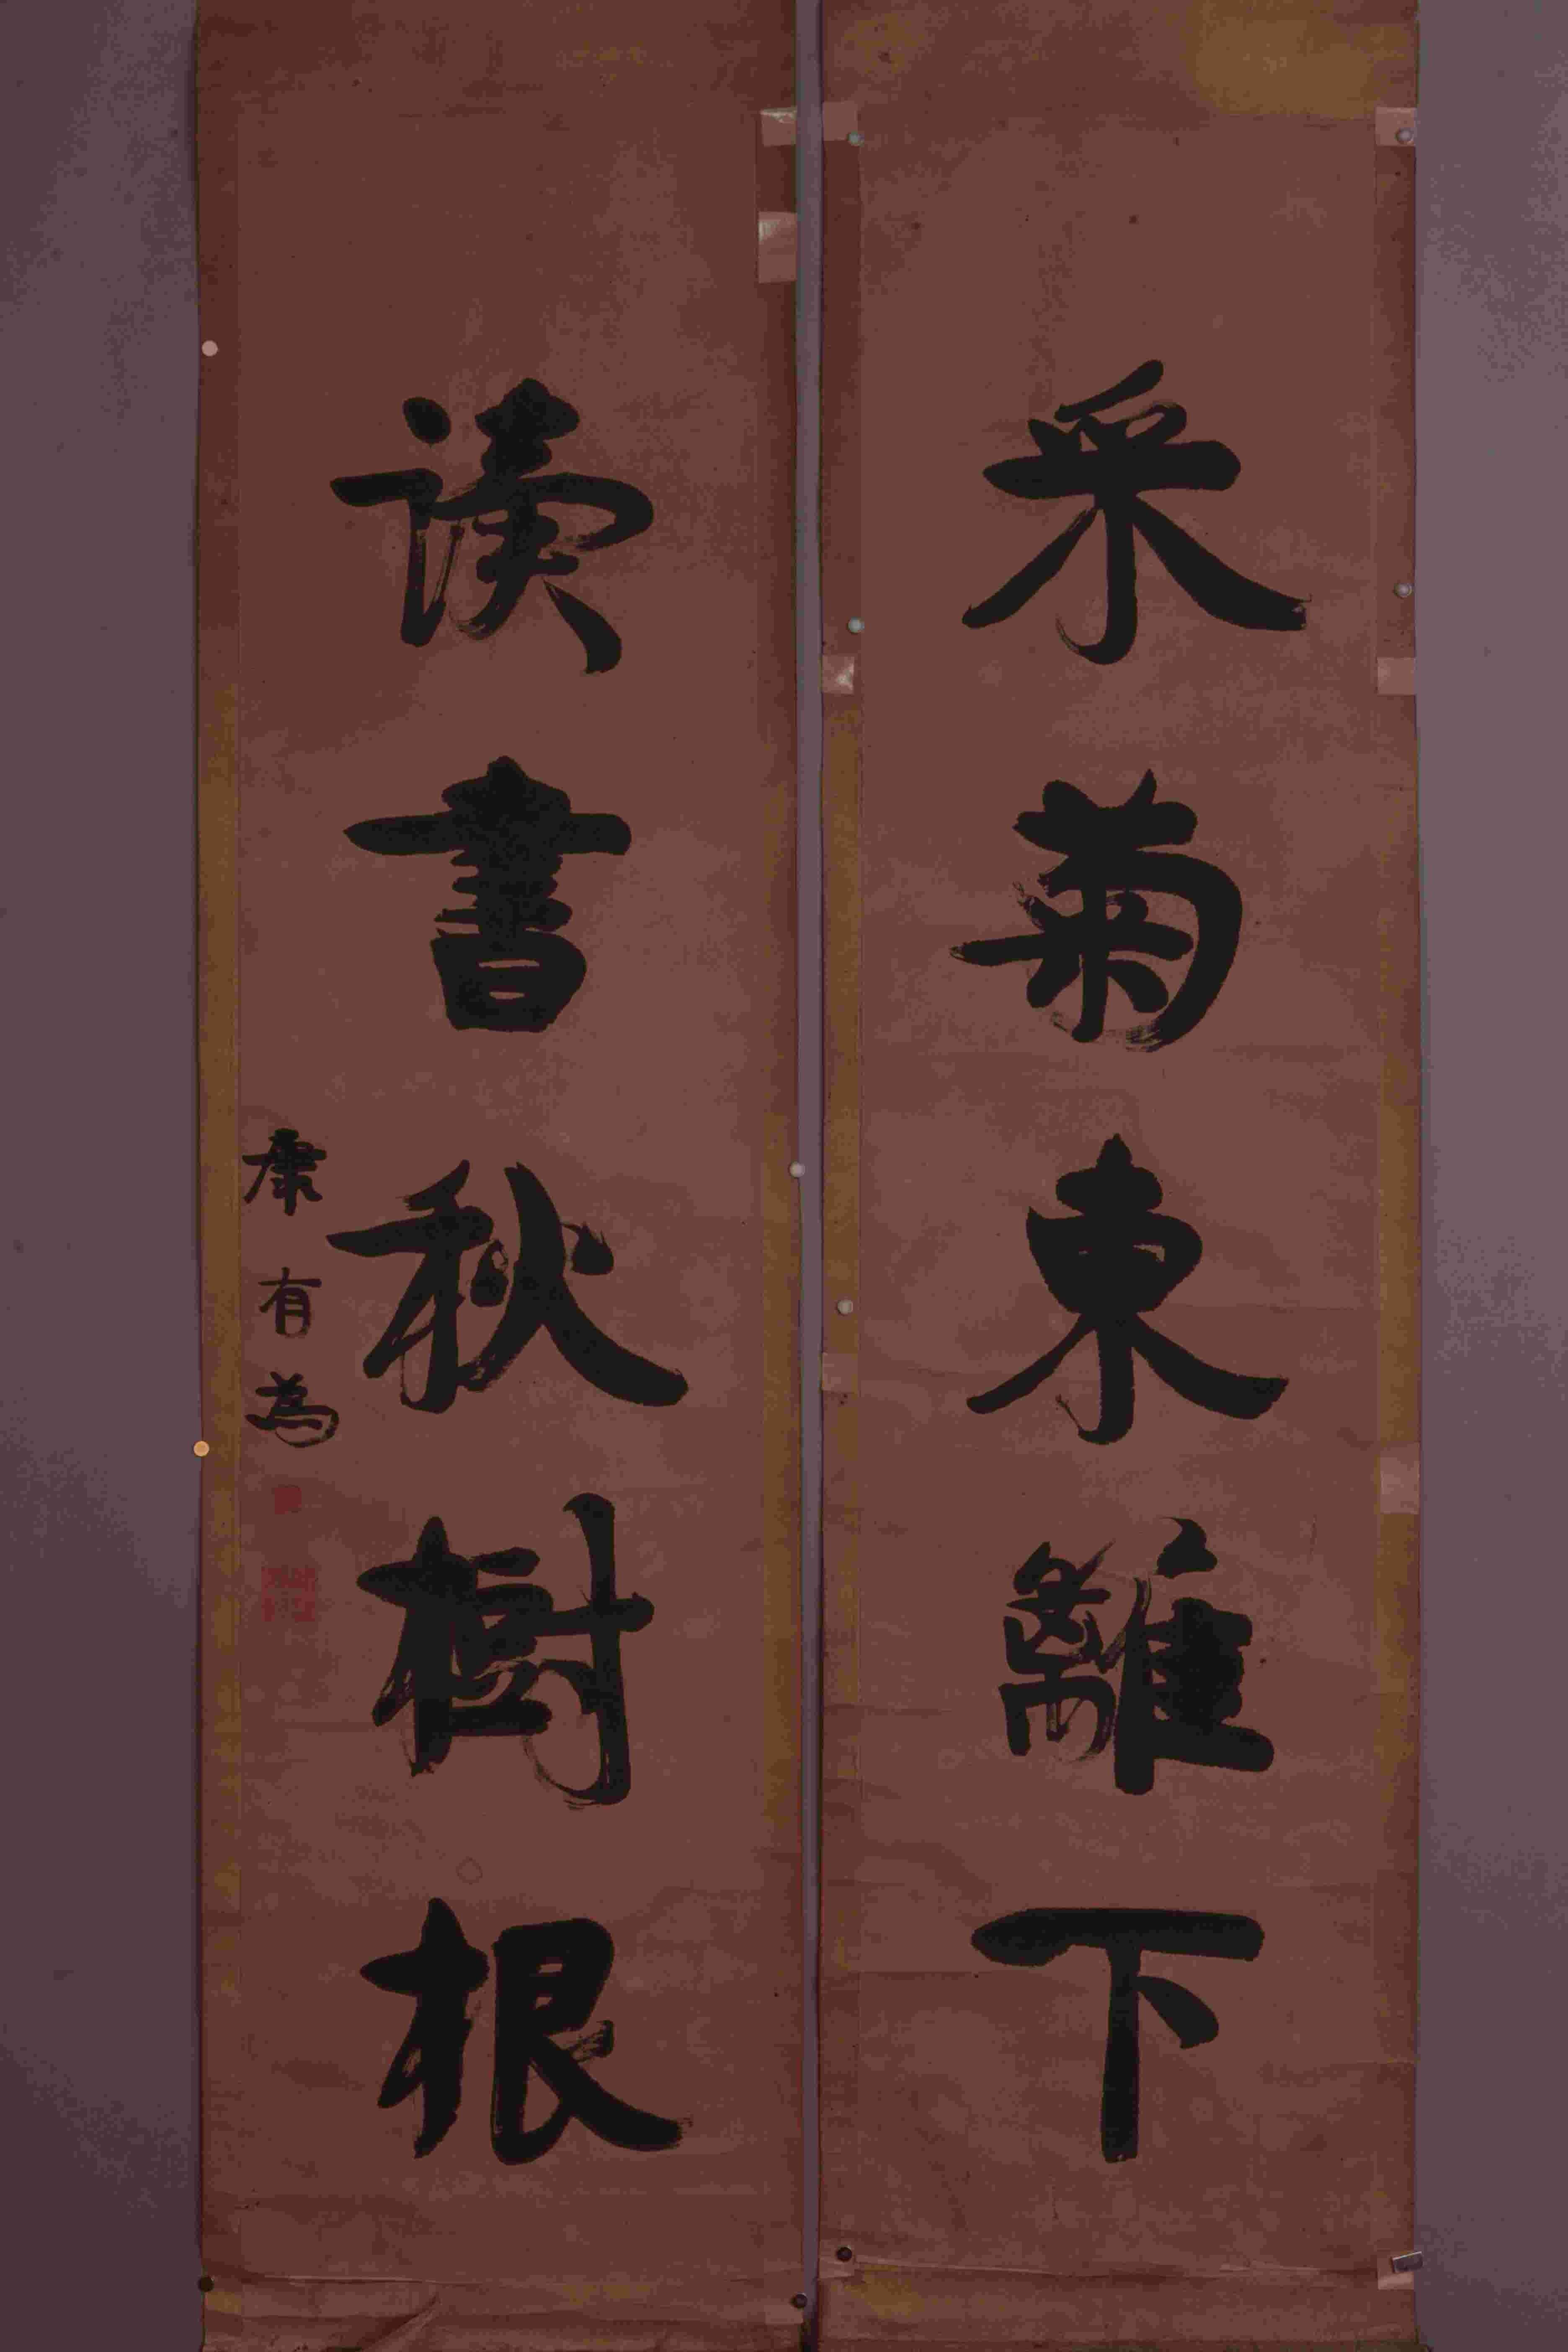 采菊東離下
读書秋樹根
康有為